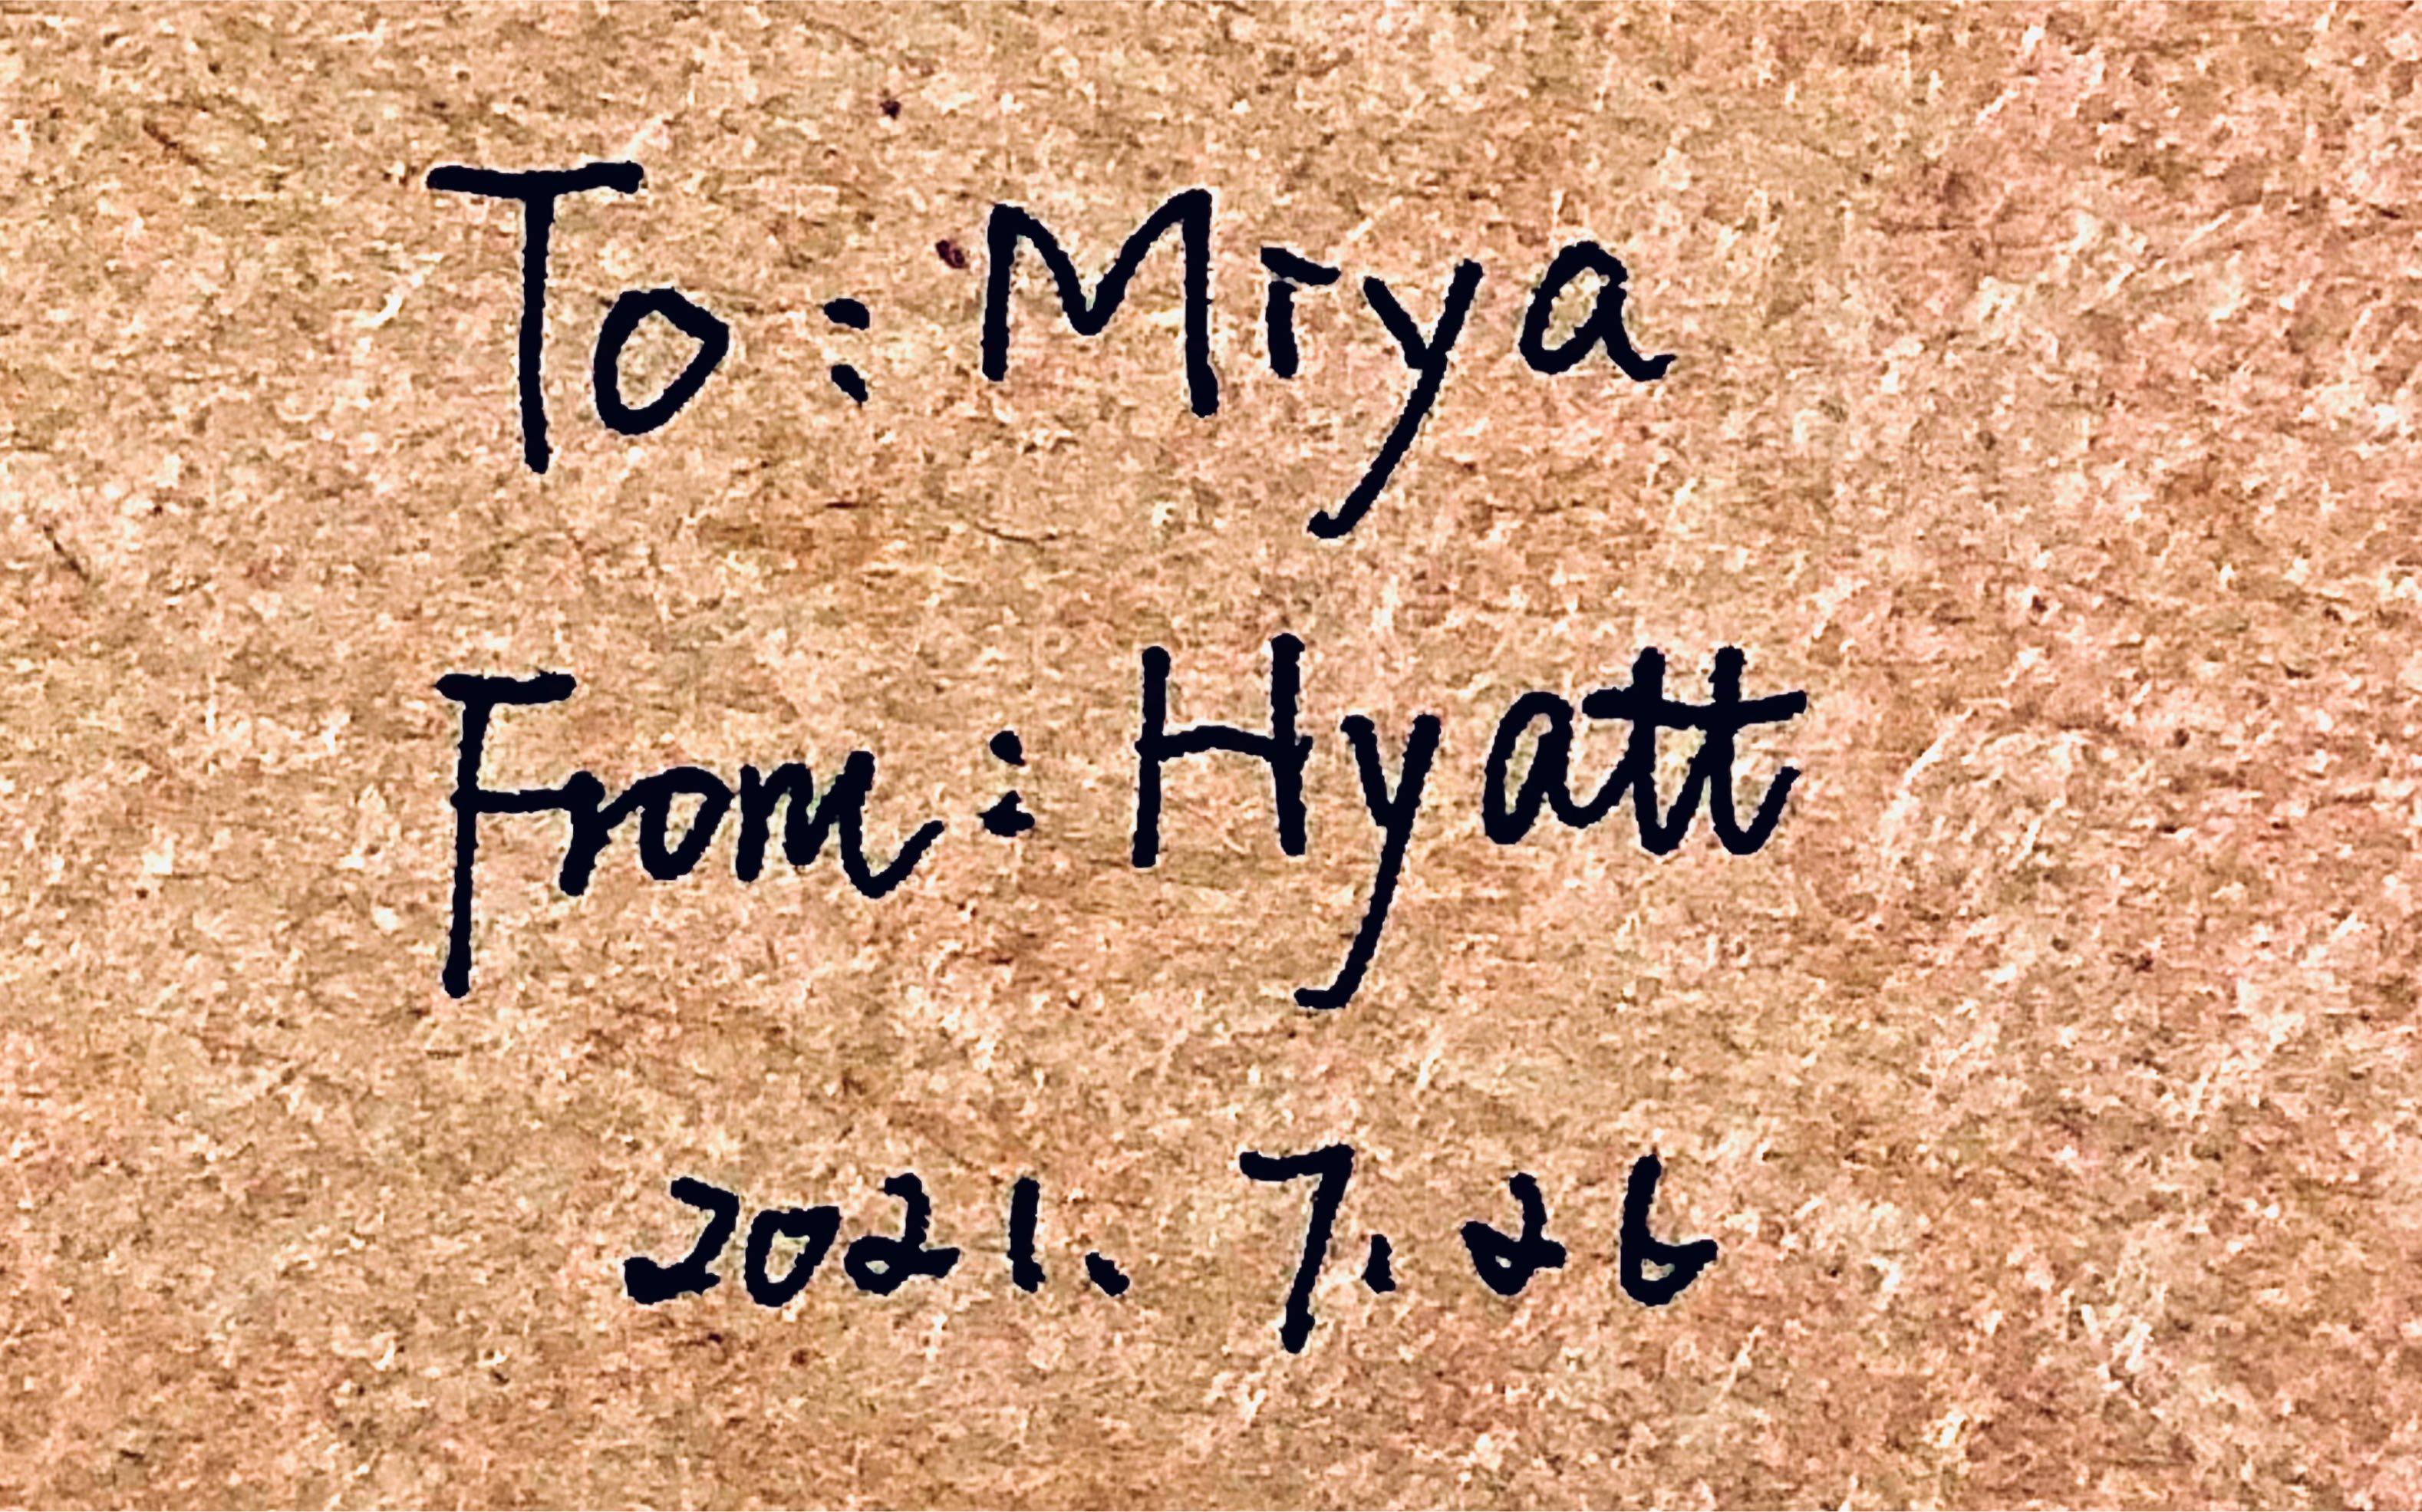 To: Miya
From: Hyatt
2021. 7. 26